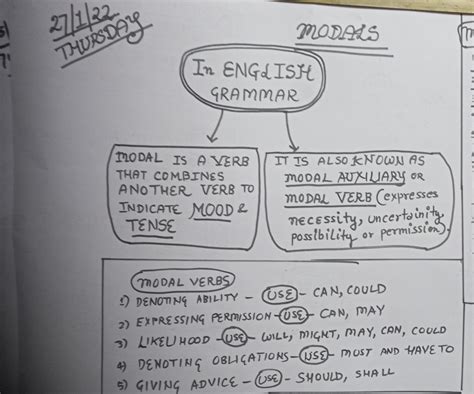 27/1/22
THURSDAY
MODALS
In ENGLISH
GRAMMAR
MODAL IS A VERB
THAT COMBINES
ANOTHER VERB TO
INDICATE MOOD &
TENSE
IT IS ALSO KNOWN AS
MODAL AUXILIARY OR
MODAL VERB (expresses
necessity, uncertainity,
possibility or permission).
MODAL VERBS
1) DENOTING ABILITY - USE - CAN, COULD
2) EXPRESSING PERMISSION - USE - CAN, MAY
3) LIKELIHOOD - USE - WILL, MIGHT, MAY, CAN, COULD
4) DENOTING OBLIGATIONS - USE - MUST AND HAVE TO
5) GIVING ADVICE - USE - SHOULD, SHALL